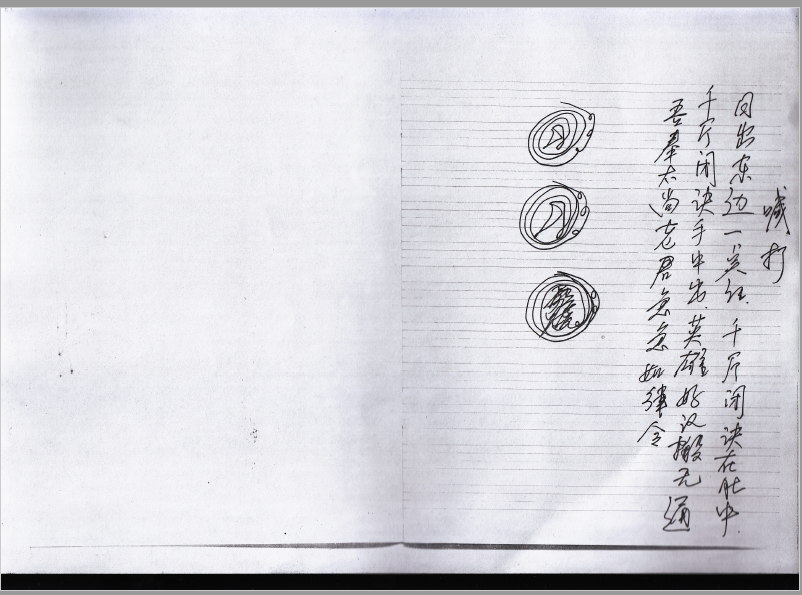 喊打
日出东边一点红千斤闭诀在肚中
千斤闭诀手中出英雄好汉搬无通
吾奉太尚老君急急如律令